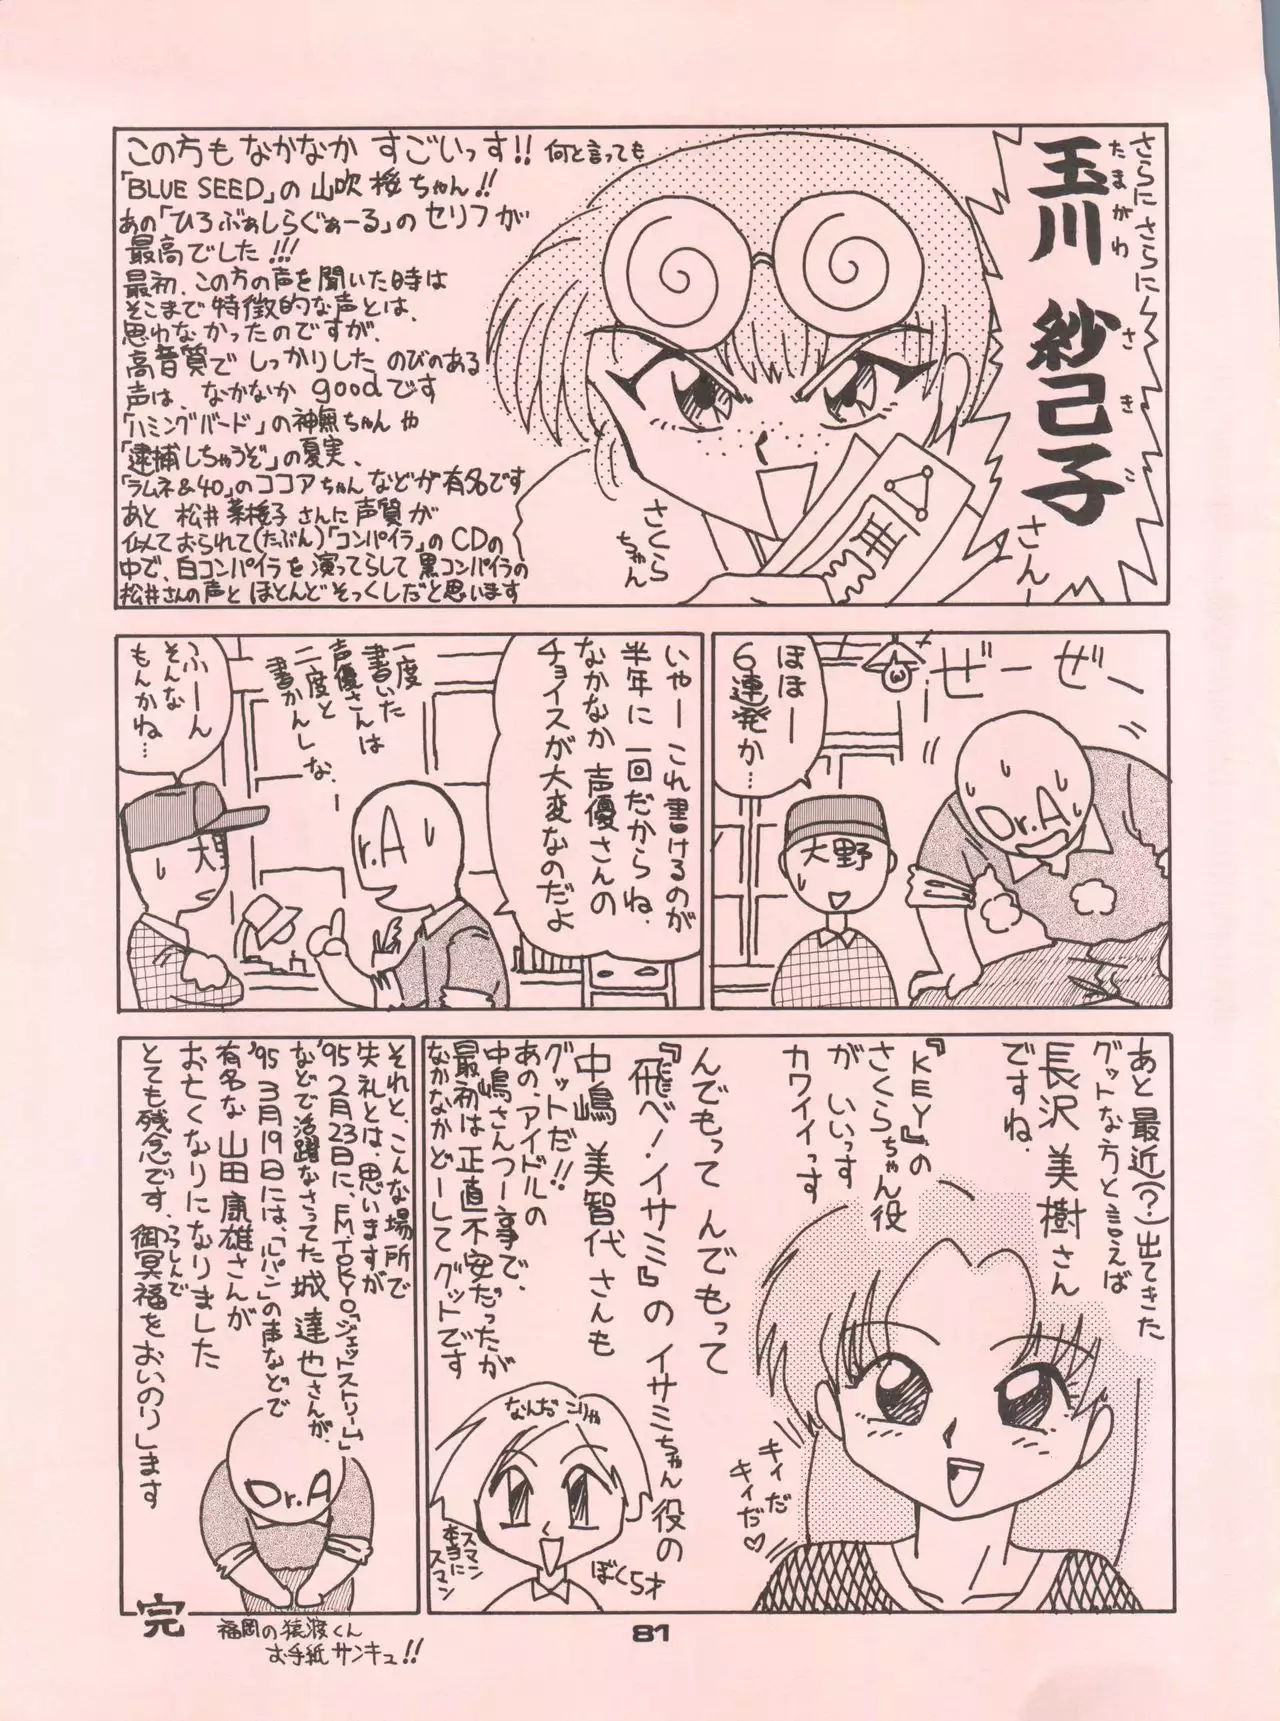 さらにさらに
玉川 紗己子
たまがわ さきこ
さんー
この方も なかなか すごいっす!! 何と言っても
「BLUE SEED」の 山吹 桜ちゃん!!
あの「ひろぶぁしらぐぁーる」の セリフが
最高でした!!!
最初、この方の声を聞いた時は
そこまで 特徴的な声とは、
思わなかったのですが、
高音質で しっかりした のびのある
声は、なかなか goodです
「ハミングバード」の神無ちゃん や
「逮捕しちゃうぞ」の夏実、
「ラムネ&40」のココアちゃん などが有名です
あと 松井 菜桜子 さんに 声質が
似ておられて(たぶん)「コンパイラ」の CDの
中で、白コンパイラを 演ってらして 黒コンパイラの
松井さんの声と ほとんど そっくしだと思います
さくら
ちゃん
ぜーぜー
ほほー
6連発か…
大野
Dr.A
いやーこれ書けるのが
半年に 一回だからね、
なかなか 声優さんの
チョイスが大変なのだよ
一度
書いた
声優さんは
二度と
書かんしな、
ふーん
そんな
もんかね…
r.A
大野
あと 最近(?)出てきた
グットな方と言えば
長沢 美樹さん
ですね、
『KEY』の
さくらちゃん役
が いいっす
カワイイっす
キィだ
キィだ♡
んでもって んでもって
『飛べ!イサミ』の イサミちゃん役の
中嶋 美智代 さんも
グットだ!!
あの、アイドルの
中嶋さんつー事で、
最初は 正直 不安だったが
なかなかどーして グットです
なんだ こりゃ
ぼく5才
スマン
本当に
スマン
それと、こんな場所で
失礼とは、思いますが
'95 2月23日に、FM TOKYO「ジェットストリーム」
などで活躍なさってた 城 達也さんが、
'95 3月19日には、「ルパン」の声などで
有名な 山田 康雄さんが
お亡くなりになりました
とても残念です、つつしんで
御冥福をおいのりします
Dr.A
完
福岡の 猿渡くん
お手紙 サンキュ!!
81